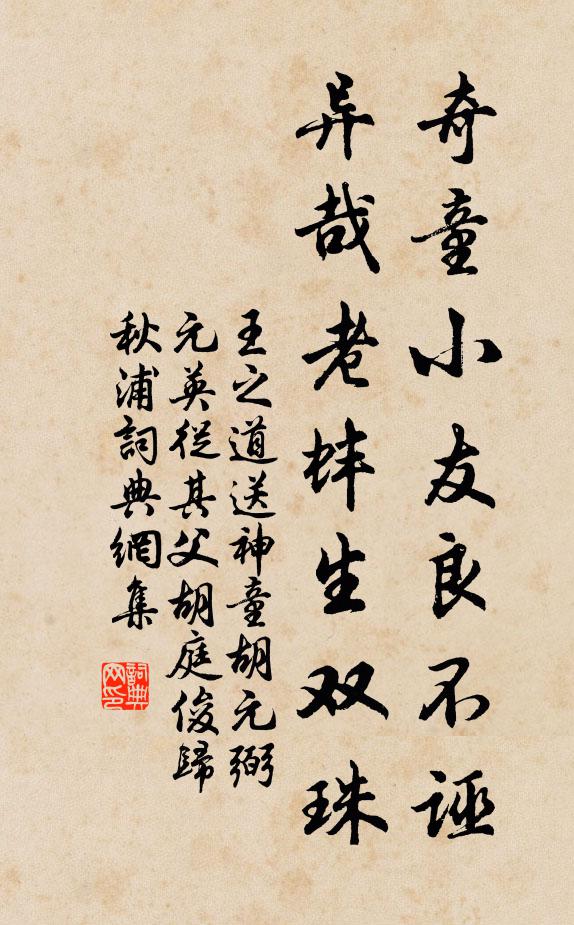 奇童小友良不诬
异哉老蚌生双珠
王之道送神童胡元弼
元英從其父胡庭俊歸
秋浦詞典網集
詞典
网印